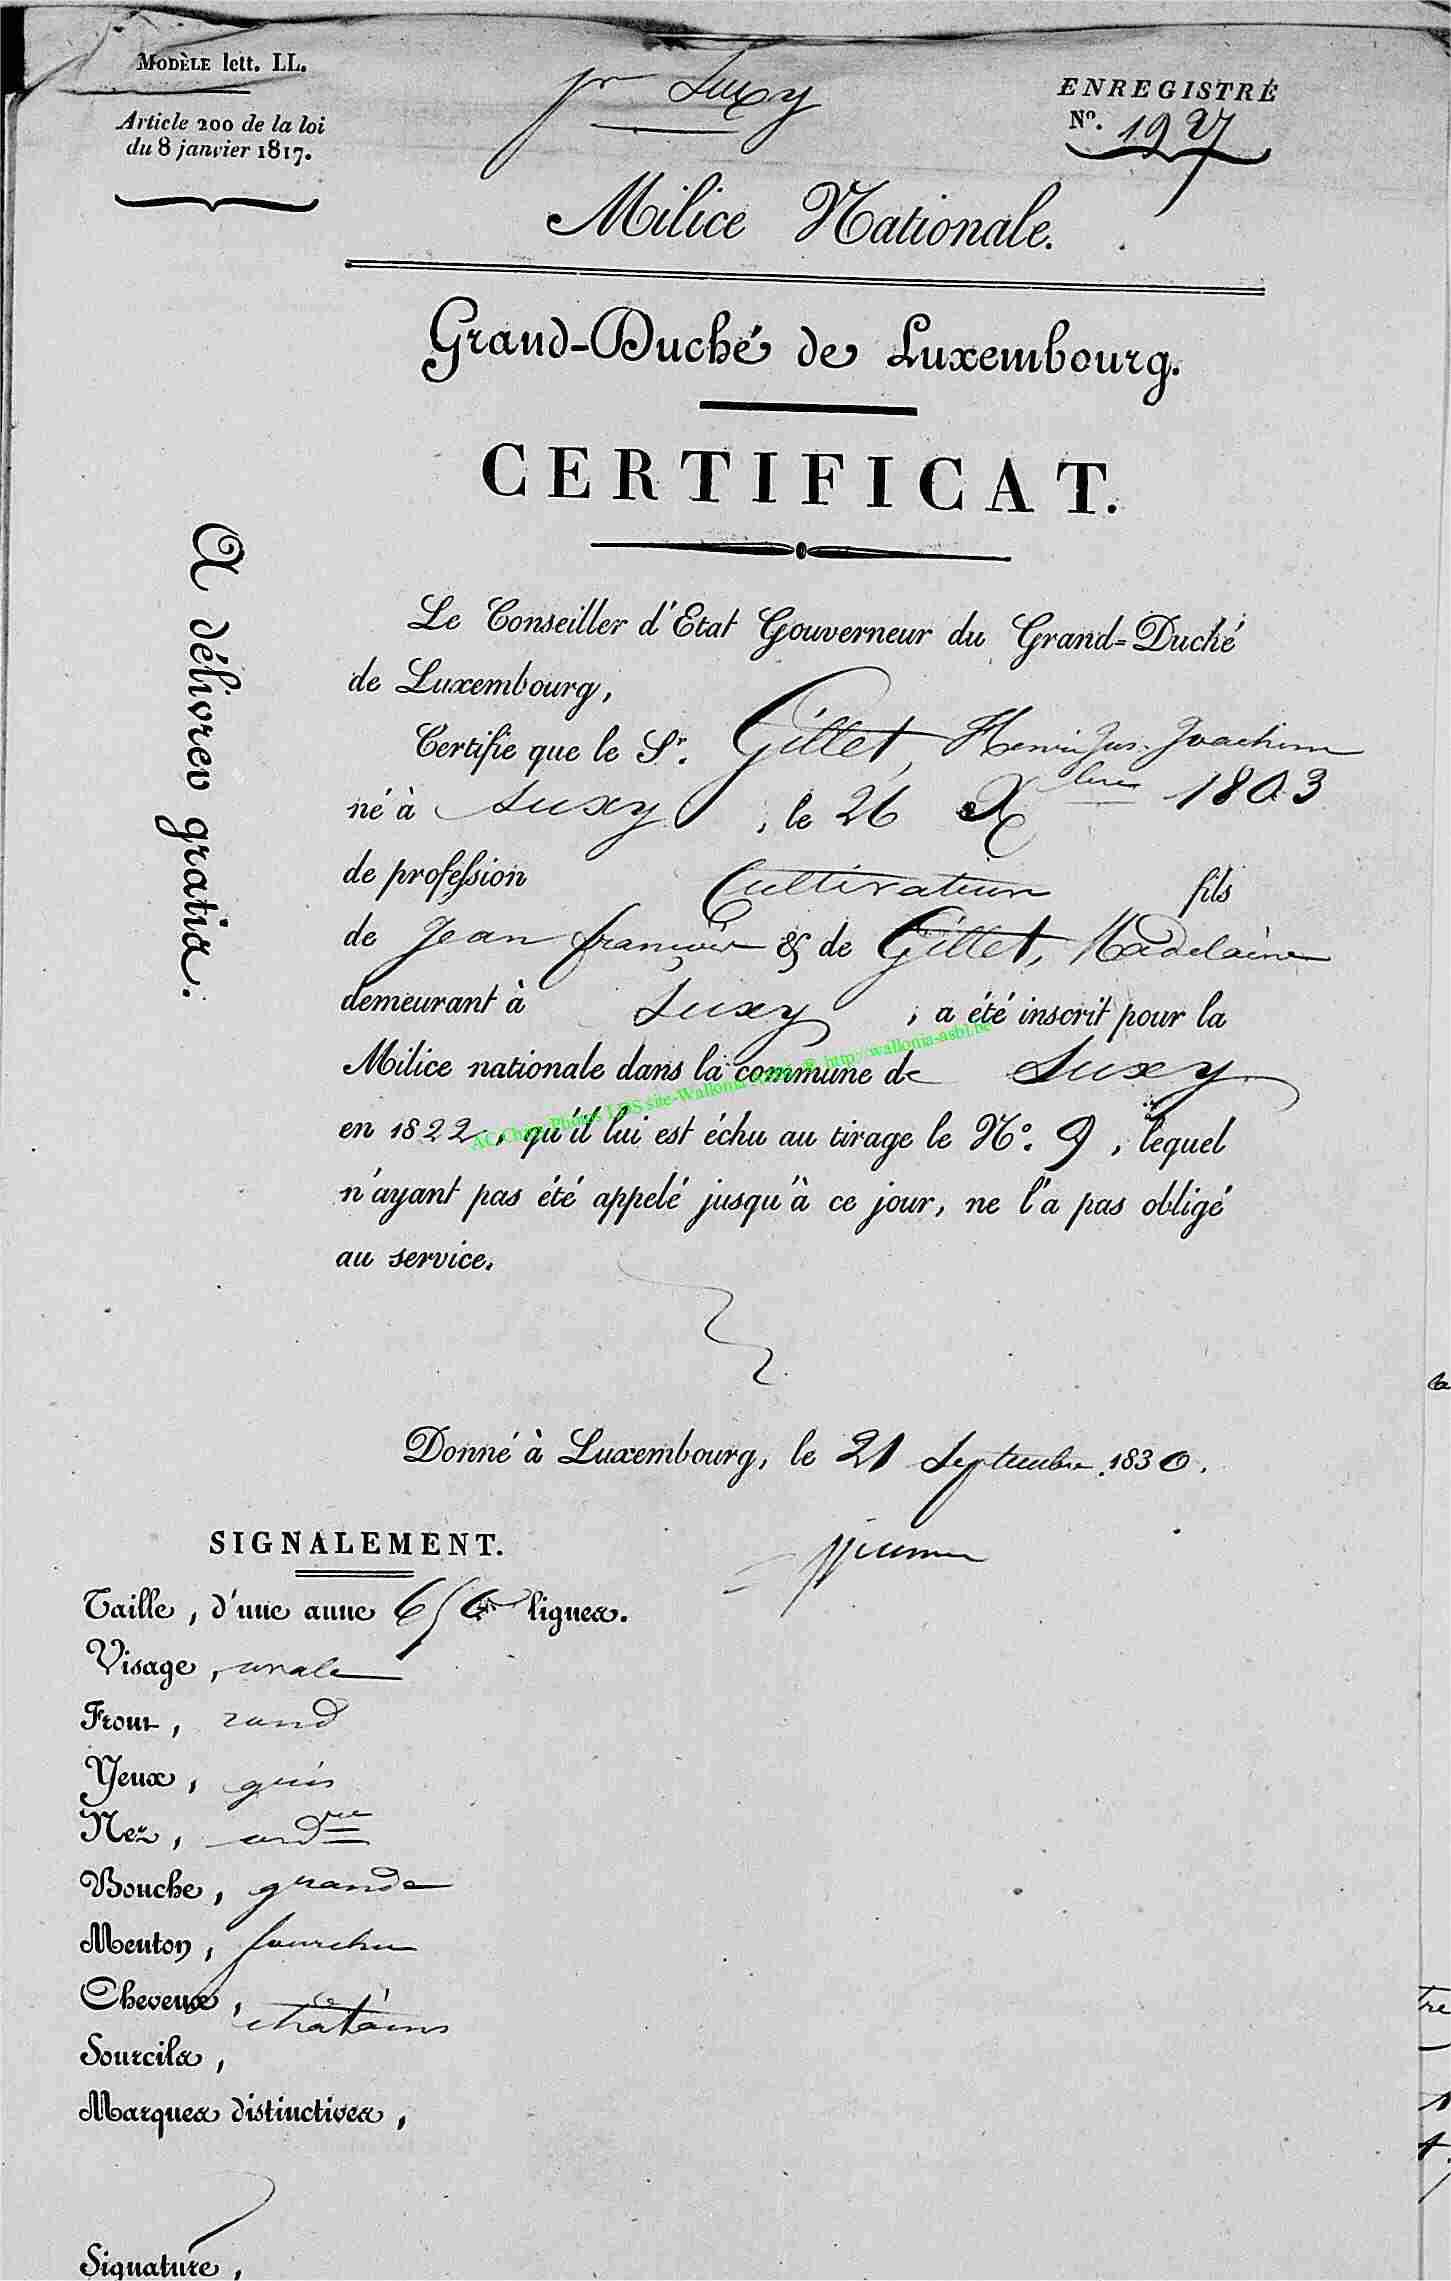 MODÈLE lett. LL.
Article 200 de la loi
du 8 janvier 1817.
pr Suxy
ENREGISTRÉ
No. 1927
Milice Nationale.
Grand-Duché de Luxembourg.
CERTIFICAT.
A délivrer gratis.
Le Conseiller d'Etat Gouverneur du Grand-Duché
de Luxembourg,
Certifie que le Sr. Gillet, Henri Jos. Joachim
né à Suxy, le 26 Xbre 1803
de profession Cultivateur fils
de Jean françois & de Gillet, Madelaine
demeurant à Suxy, a été inscrit pour la
Milice nationale dans la commune de Suxy
en 1822, qu'il lui est échu au tirage le No. 9, lequel
n'ayant pas été appelé jusqu'à ce jour, ne l'a pas obligé
au service.
http://wallonia-asbl.be
Donné à Luxembourg, le 21 Septembre 1830.
SIGNALEMENT.
Taille, d'une aune lignes.
Visage, ovale
Front, rond
Yeux, gris
Nez, ordre
Bouche, grande
Menton, fourchu
Cheveux, châtains
Sourcils,
Marques distinctives,
Signature,